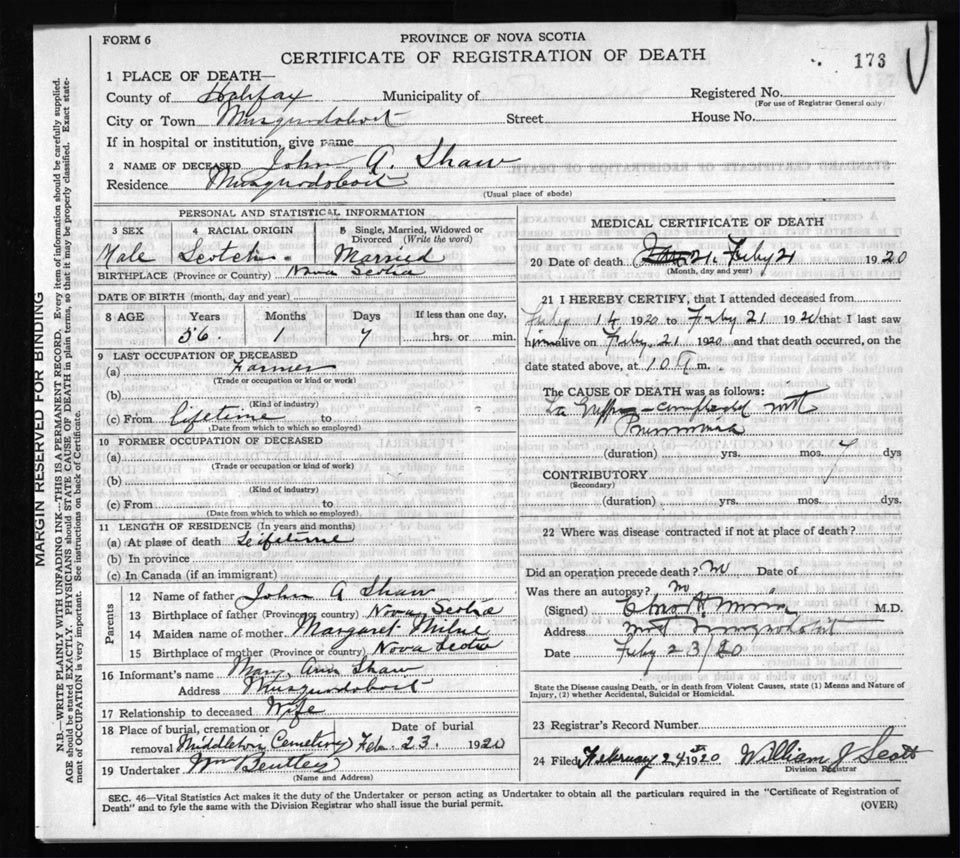 FORM 6
PROVINCE OF NOVA SCOTIA
CERTIFICATE OF REGISTRATION OF DEATH
173
1 PLACE OF DEATH—
County of Halifax Municipality of Registered No.
(For use of Registrar General only)
City or Town Musquodoboit Street House No.
If in hospital or institution, give name
2 NAME OF DECEASED John A. Shaw
Residence Musquodoboit
(Usual place of abode)
PERSONAL AND STATISTICAL INFORMATION
3 SEX 4 RACIAL ORIGIN 5 Single, Married, Widowed or Divorced (Write the word)
Male Scotch Married
BIRTHPLACE (Province or Country) Nova Scotia
DATE OF BIRTH (month, day and year)
8 AGE Years Months Days If less than one day,
56 1 7 hrs. or min.
9 LAST OCCUPATION OF DECEASED
(a) Farmer
(Trade or occupation or kind or work)
(b)
(Kind of industry)
(c) From Lifetime to
(Date from which to which so employed)
10 FORMER OCCUPATION OF DECEASED
(a)
(Trade or occupation or kind of work)
(b)
(Kind of industry)
(c) From to
(Date from which to which so employed).
11 LENGTH OF RESIDENCE (In years and months)
(a) At place of death Leifetime
(b) In province
(c) In Canada (if an immigrant)
Parents
12 Name of father John A Shaw
13 Birthplace of father (Province or country) Nova Scotia
14 Maiden name of mother Margaret Milne
15 Birthplace of mother (Province or country) Nova Scotia
16 Informant's name Mary Ann Shaw
Address Musquodoboit
17 Relationship to deceased Wife
18 Place of burial, cremation or Date of burial
removal Middleton Cemetery Feb. 23. 1920
19 Undertaker Wm Bentley
(Name and Address)
MEDICAL CERTIFICATE OF DEATH
20 Date of death 21. Feby 21 1920
(Month, day and year)
21 I HEREBY CERTIFY, that I attended deceased from
Feby 14 1920 to Feby 21 1920 that I last saw
him alive on Feby. 21 1920 and that death occurred, on the
date stated above, at 10 m.
The CAUSE OF DEATH was as follows:
La Grippe - complicated with
Pneumonia
(duration) yrs. mos. 7 dys
CONTRIBUTORY
(Secondary)
(duration) yrs. mos. dys.
22 Where was disease contracted if not at place of death?
Did an operation precede death? No Date of
Was there an autopsy? No
(Signed) M.D.
Address Musquodoboit
Date Feby 23/20
State the Disease causing Death, or in death from Violent Causes, state (1) Means and Nature of
Injury, (2) whether Accidental, Suicidal or Homicidal.
23 Registrar's Record Number
24 Filed February 24th 1920 William J Scott
Division Registrar
SEC. 46—Vital Statistics Act makes it the duty of the Undertaker or person acting as Undertaker to obtain all the particulars required in the "Certificate of Registration of
Death" and to fyle the same with the Division Registrar who shall issue the burial permit.
(OVER)
MARGIN RESERVED FOR BINDING
N.B.—WRITE PLAINLY WITH UNFADING INK—THIS IS A PERMANENT RECORD. Every item of information should be carefully supplied.
AGE should be stated EXACTLY. PHYSICIANS should STATE CAUSE OF DEATH in plain terms, so that it may be properly classified. Exact state-
ment of OCCUPATION is very important. See instructions on back of Certificate.